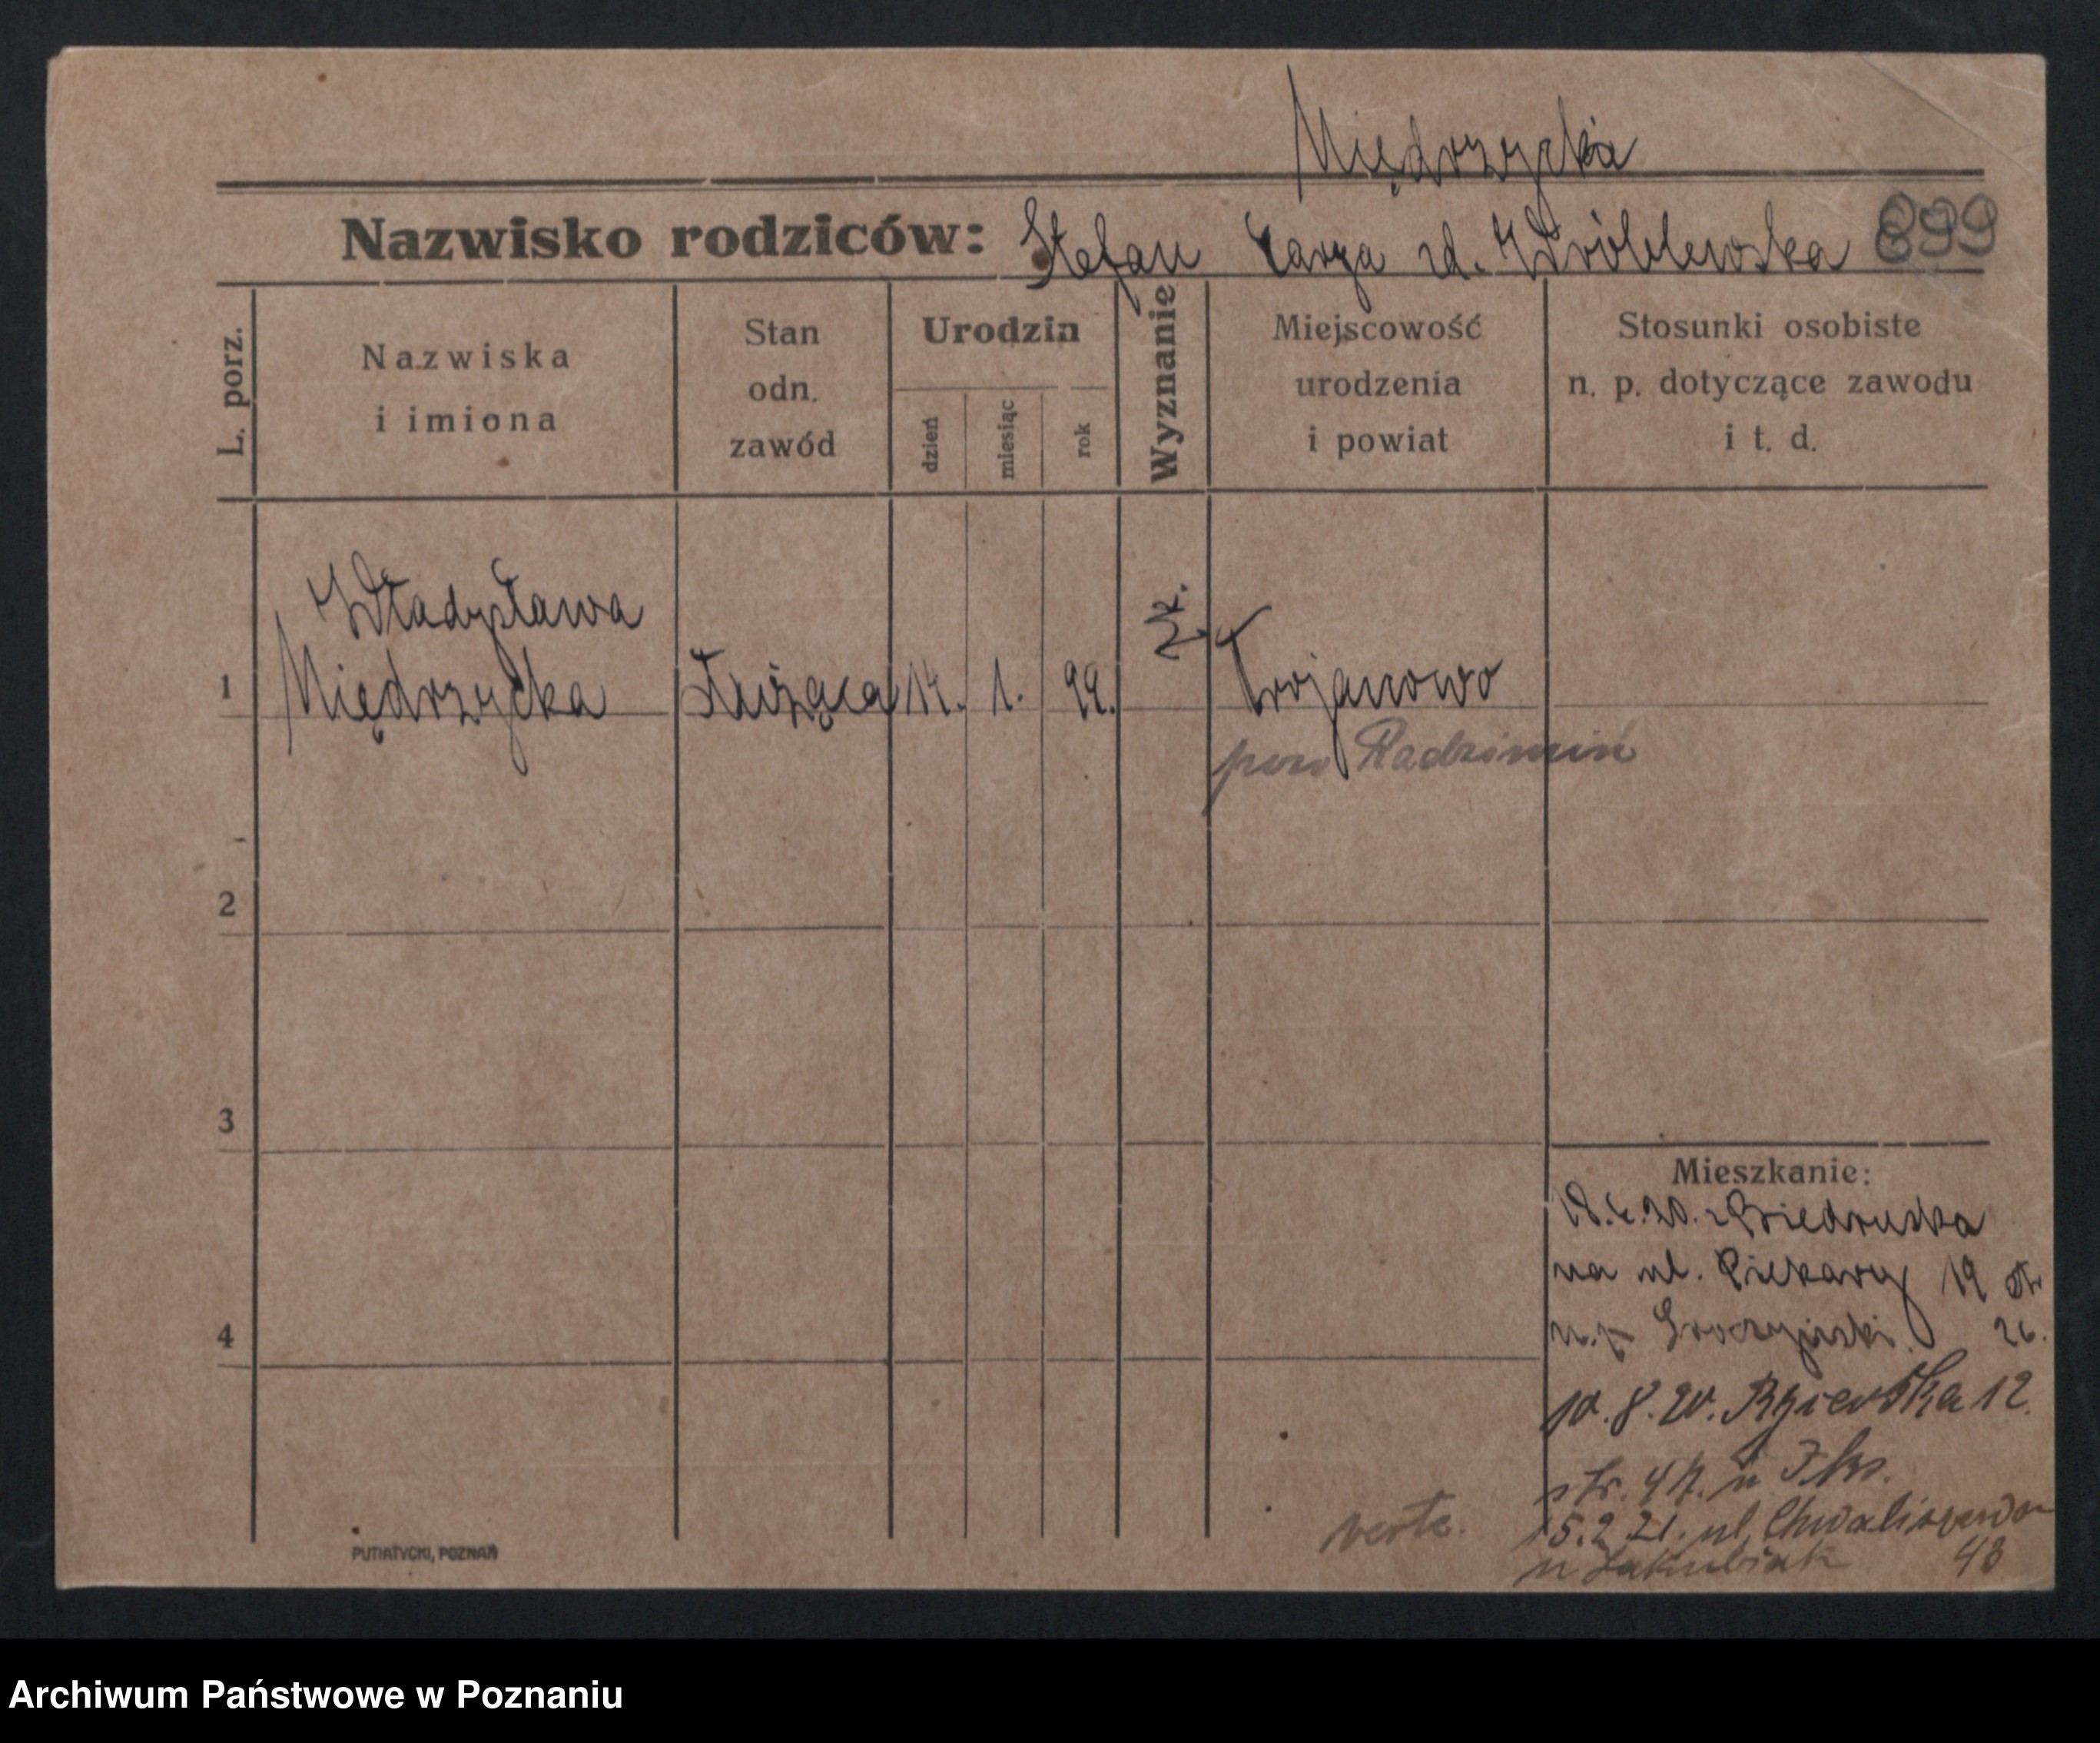 Międzrzycka
Nazwisko rodziców: Stefan zd. Wróblewska 899
L. porz.
Nazwiska
i imiona
Stan
odn.
zawód
Urodzin
dzień
miesiąc
rok
Wyznanie
Miejscowość
urodzenia
i powiat
Stosunki osobiste
n. p. dotyczące zawodu
i t. d.
Władysława
1 Międrzycka Służąca 14. 1. 99. rk. Trojanowo
pow Radzimin
2
3
Mieszkanie:
z Biedruska
na ul. Piekary 19
4
26.
10.8.20. 12.
str. 47.
15.2.21. ul. Chwaliszewo
verte.
u Jakubiak 43
PUTIATYCKI, POZNAŃ
Archiwum Państwowe w Poznaniu